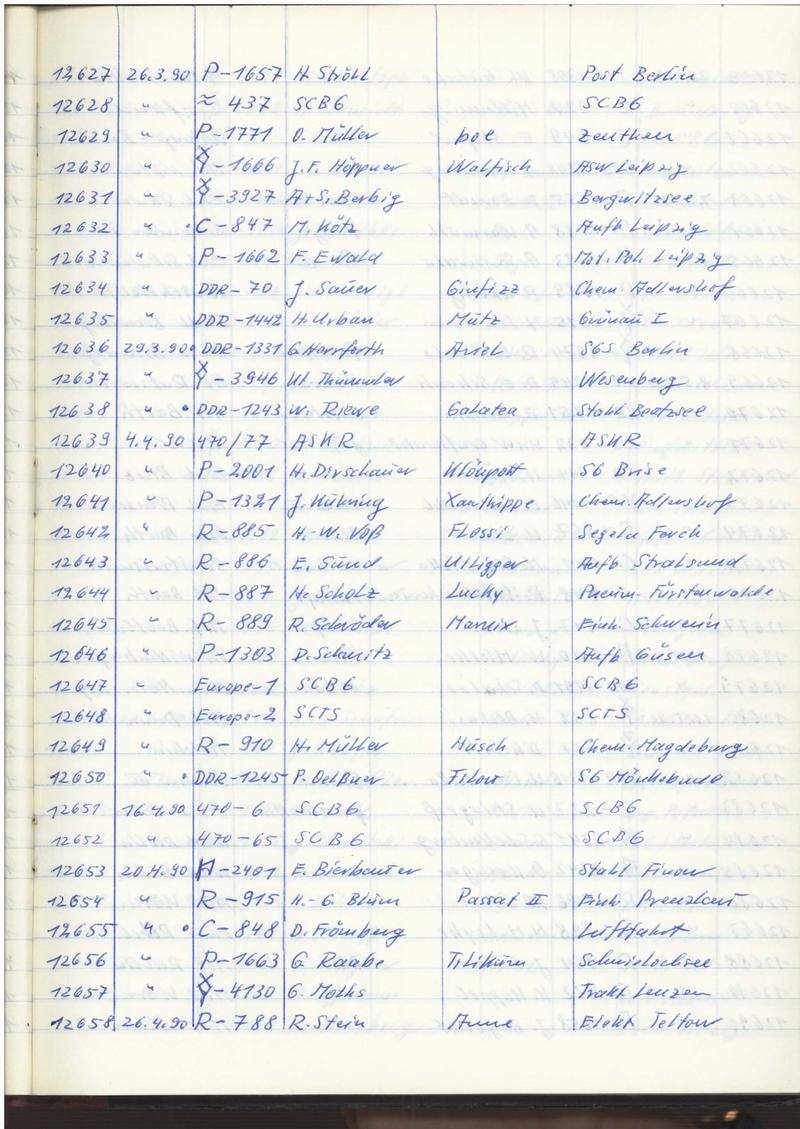 12627 26.3.90 P-1657 H. Ströhl Post Berlin
12628 " ≈ 437 SCB6 SCB6
12629 " P-1771 O. Müller boe Zeuthen
12630 " -1666 J.F. Höppner Walfisch ASW Leipzig
12631 " -3927 A+S. Berbig Bergwitzsee
12632 " • C-847 M. Kötz Aufb Leipzig
12633 " P-1662 F. Ewald Mot. Leipzig
12634 " DDR-70 J. Sauer Ginfizz Chem. Adlershof
12635 " DDR-1442 H. Urban Mütz Grünau I
12636 29.3.90 • DDR-1331 G. Herrforth Ariel SGS Berlin
12637 " -3946 Wesenberg
12638 " • DDR-1243 W. Riewe Galatea Stahl Beetzsee
12639 4.4.90 470/77 ASKR ASKR
12640 " P-2001 H. Dirschauer Klönpott SG Brise
12641 " P-1321 J. Kühning Xanthippe Chem. Adlershof
12642 " R-885 H.-W. Voß Flossi Segeln Ferch
12643 " R-886 E. Sund Uligger Aufb. Stralsund
12644 " R-887 H. Scholz Lucky Pneum. Fürstenwalde
12645 " R-889 R. Schröder Marnix Einh. Schwerin
12646 " P-1303 D. Schmitz Aufb Güsen
12647 " Europe-1 SCB6 SCB6
12648 " Europe-2 SCTS SCTS
12649 " R-910 H. Müller Husch Chem. Magdeburg
12650 " • DDR-1245 P. Oelßner Filou SG Mönkebude
12651 16.4.90 470-6 SCB6 SCB6
12652 " 470-65 SCB6 SCB6
12653 20.4.90 H-2401 E. Bierbauer Stahl Finow
12654 " R-915 H.-G. Blüm Passat II Einh. Prenzlau
12655 " • C-848 D. Frömberg Luftfahrt
12656 " P-1663 G. Raabe Tilikum Schwielochsee
12657 " -4130 G. Moths Trakt Lenzen
12658 26.4.90 R-788 R. Stein Anne Elekt Teltow